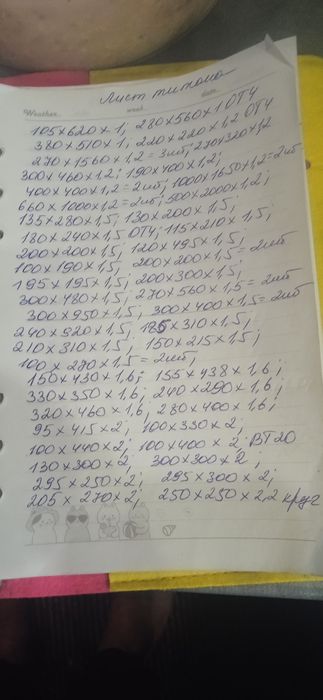 Лист титана
Weather week date
105×620×1; 280×560×1 ОТ4
380×510×1; 220×220×1,2 ОТ4
270×1560×1,2 = 3шт; 270×320×1,2
300×460×1,2; 190×400×1,2;
400×400×1,2 = 2шт; 1000×1650×1,2 = 2шт
660×1000×1,2 = 2шт; 500×2000×1,2;
135×280×1,5; 130×200×1,5;
180×240×1,5 ОТ4; 115×210×1,5;
200×200×1,5; 120×495×1,5;
100×190×1,5; 200×200×1,5 = 2шт
195×195×1,5; 200×300×1,5;
300×480×1,5; 270×560×1,5 = 2шт
300×950×1,5; 300×400×1,5 = 2шт
240×520×1,5; 185×310×1,5;
210×310×1,5; 150×215×1,5;
100×270×1,5 = 2шт;
150×430×1,6; 155×438×1,6;
330×350×1,6; 240×290×1,6;
320×460×1,6; 280×400×1,6;
95×415×2; 100×330×2;
100×440×2; 100×400×2 ВТ20
130×300×2; 300×300×2;
295×250×2; 295×300×2;
205×270×2; 250×250×2,2 круг